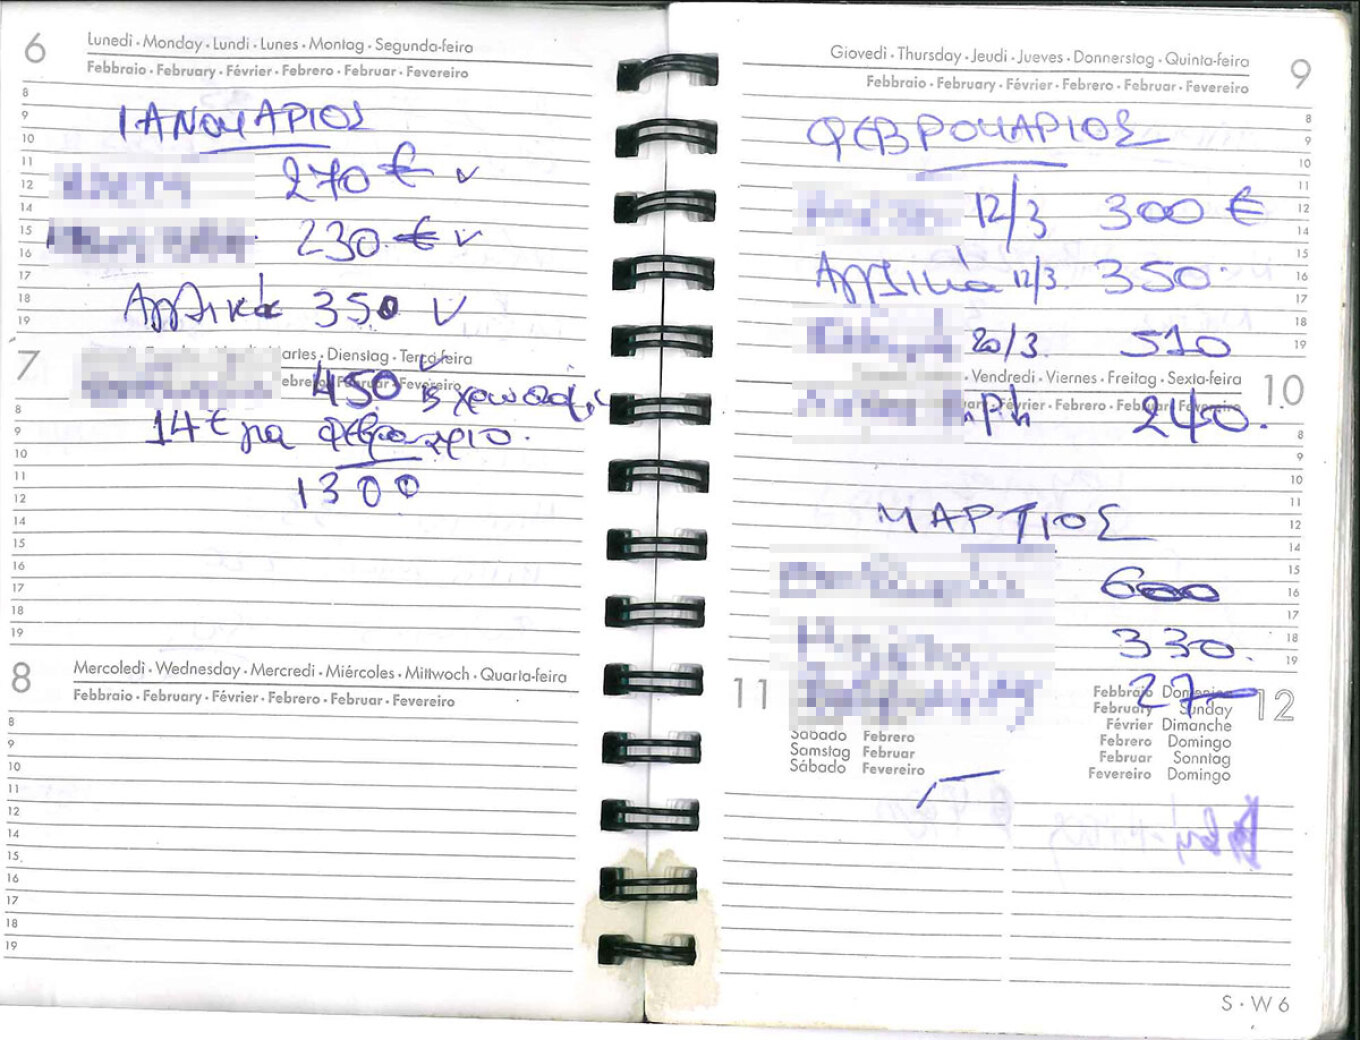 6
Lunedì · Monday · Lundi · Lunes · Montag · Segunda-feira
Febbraio · February · Février · Febrero · Februar · Fevereiro
8
9 ΙΑΝΟΥΑΡΙΟΣ
10
11
12 270 €
14
15 230 €
16
17
18 Αγγλικά 350
19
7
artes · Dienstag · Terça-feira
Februar · Fevereiro
450
8
9 14€ για Φεβρουάριο.
10
11
12 1300
14
15
16
17
18
19
8
Mercoledì · Wednesday · Mercredi · Miércoles · Mittwoch · Quarta-feira
Febbraio · February · Février · Febrero · Februar · Fevereiro
8
9
10
11
12
14
15
16
17
18
19
Giovedì · Thursday · Jeudi · Jueves · Donnerstag · Quinta-feira
9
Febbraio · February · Février · Febrero · Februar · Fevereiro
8
ΦΕΒΡΟΥΑΡΙΟΣ 9
10
11
12/3 300 € 12
14
15
Αγγλικά 12/3. 350 16
17
18
20/3. 510 19
· Vendredi · Viernes · Freitag · Sexta-feira
10
Février · Febrero · Februar Fevereiro
240.
8
9
10
11
ΜΑΡΤΙΟΣ 12
14
15
600 16
17
330. 18
19
11
27
12
Febbraio Domenica
February Sunday
Février Dimanche
Sábado Febrero
Febrero Domingo
Samstag Februar
Februar Sonntag
Sábado Fevereiro
Fevereiro Domingo
S · W 6